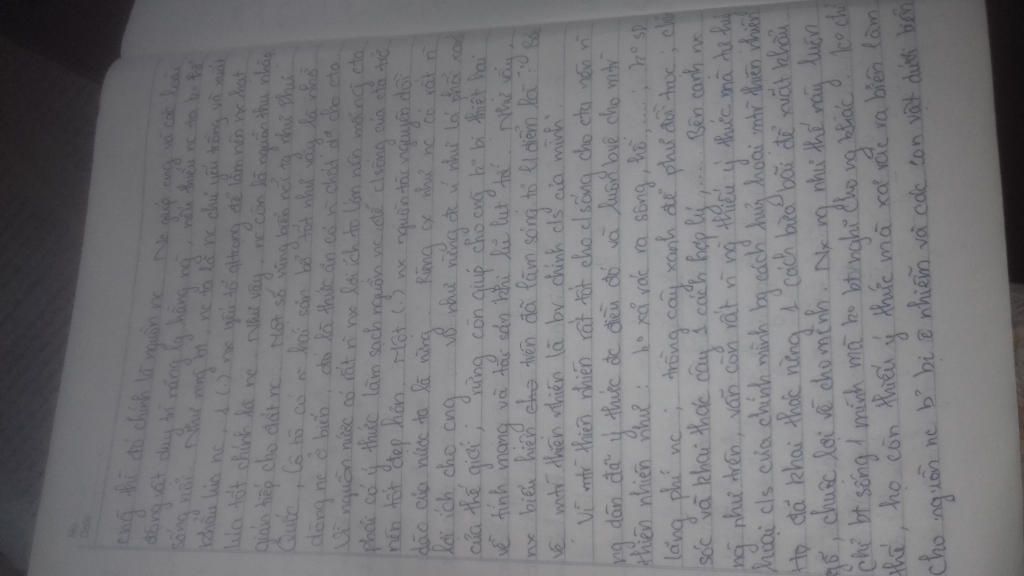 No.
Date
cũng thì đó chính là nguồn nc. Nc giúp ng và các loài
động vật duy trì năng lg hàng ng, nếu thiếu nc ta k thể
sống nổi. Như mng bt, nc ta là nc chủ yếu trồng và xuất
khẩu lúa nc, 1 () nx yếu tố qtrong để làm nên nc hạt
lúa tốt chính là nc. Như vậy, nc còn là nguồn thu nhập
gián tiếp cho đất nc. Một số vùng biển nổi ng như Phú
Quốc, Cô tô có n hải sản bổ, tốt như vậy là nhờ
dòng nc ở biển, đó là thức ăn có n chất dd do cta
Vì nguồn nước có rất n nx lợi ích to lớn nên mỗi ng cta
phải có ý thức làm sạch nguồn nc để c/sống của cta trở
nên tốt đẹp hơn. Một () nx nguồn tài nguyên dồi
dào của nước ta là rừng. Rừng cx như nc có rất n
lợi ích cho cng vd như rừng đc ví như lá phổi xanh
của thế giới, rừng còn giúp cho cng k bị thiệt hại
về tính mạng và tài sản khi lũ lụt tới. Như vậy,
nx biểu hiện trên đã làm sáng tỏ l/điểm là: Bảo
vệ mtr thiên nhiên là bv chính c/s của mình".
Vì mtr thiên nhiên rất tốt cho c/sống cho cta nên n
ng dân đã ý thức đc điều đó và luôn bvệ cho mtr
thiên nhiên như: k xả rác ra sông, hồ,...; k sd
lãng phí nc; trồng cây xanh để phủ đồi trọc; ch
sóc và khai thác cây 1 cách hợp lý,..... Bên cạnh nx
ng như trên, vẫn còn rất n ng thiếu ý thức mà hệ luỵ
hoại c/s của chính mình bg cách huỷ hoại mtr thiên nhiên
Họ đã khai thác rừng 1 cách bừa bãi để xuất khẩu
gỗ, chuộc lợi về cho mình. Nx ng như thế này luôn
chỉ bt sống 1 mình mà k bt nghĩ cho ng khác. k chỉ
thế, họ còn thiếu ý thức mà xả rác ra biển làm
cho nguồn nc bị ô nhiễm và các con vật dưới biển